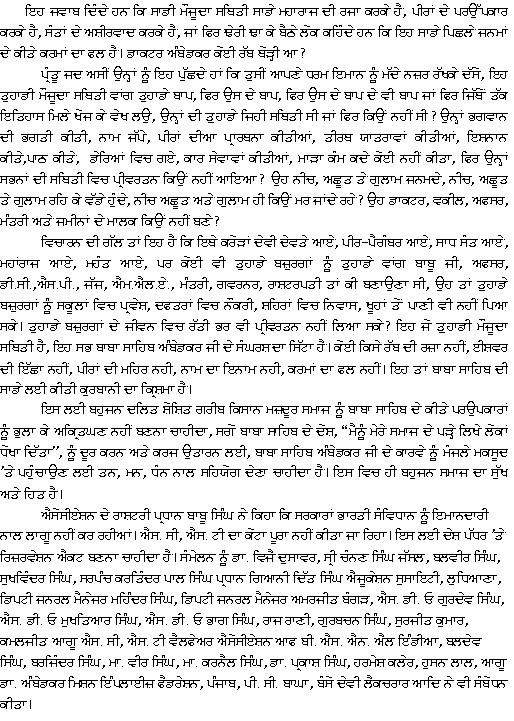 ਇਹ ਜਵਾਬ ਦਿੰਦੇ ਹਨ ਕਿ ਸਾਡੀ ਮੌਜੂਦਾ ਸਥਿਤੀ ਸਾਡੇ ਮਹਾਰਾਜ ਦੀ ਰਜਾ ਕਰਕੇ ਹੈ, ਪੀਰਾਂ ਦੇ ਪਰਉੱਪਕਾਰ
ਕਰਕੇ ਹੈ, ਸੰਤਾਂ ਦੇ ਅਸ਼ੀਰਵਾਦ ਕਰਕੇ ਹੈ, ਜਾਂ ਫਿਰ ਢੇਰੀ ਢਾ ਕੇ ਬੈਠੇ ਲੋਕ ਕਹਿੰਦੇ ਹਨ ਕਿ ਇਹ ਸਾਡੇ ਪਿਛਲੇ ਜਨਮਾਂ
ਦੇ ਕੀਤੇ ਕਰਮਾਂ ਦਾ ਫਲ ਹੈ। ਡਾਕਟਰ ਅੰਬੇਡਕਰ ਕੋਈ ਰੱਬ ਥੋੜੀ ਆ ?
ਪ੍ਰੰਤੂ ਜਦ ਅਸੀਂ ਉਨ੍ਹਾਂ ਨੂੰ ਇਹ ਪੁੱਛਦੇ ਹਾਂ ਕਿ ਤੁਸੀਂ ਆਪਣੇ ਧਰਮ ਇਮਾਨ ਨੂੰ ਮੱਦੇ ਨਜ਼ਰ ਰੱਖਕੇ ਦੱਸੋ, ਇਹ
ਤੁਹਾਡੀ ਮੌਜੂਦਾ ਸਥਿਤੀ ਵਾਂਗ ਤੁਹਾਡੇ ਬਾਪ, ਫਿਰ ਉਸ ਦੇ ਬਾਪ, ਫਿਰ ਉਸ ਦੇ ਬਾਪ ਦੇ ਵੀ ਬਾਪ ਜਾਂ ਫਿਰ ਜਿੱਥੋਂ ਤੱਕ
ਇਤਿਹਾਸ ਮਿਲੇ ਖੋਜ ਕੇ ਵੇਖ ਲਉ, ਉਨ੍ਹਾਂ ਦੀ ਤੁਹਾਡੇ ਜਿਹੀ ਸਥਿਤੀ ਸੀ ਜਾਂ ਫਿਰ ਕਿਉਂ ਨਹੀਂ ਸੀ ? ਉਨ੍ਹਾਂ ਭਗਵਾਨ
ਦੀ ਭਗਤੀ ਕੀਤੀ, ਨਾਮ ਜੱਪੇ, ਪੀਰਾਂ ਦੀਆ ਪ੍ਰਾਰਥਨਾ ਕੀਤੀਆਂ, ਤੀਰਥ ਯਾਤਰਾਵਾਂ ਕੀਤੀਆਂ, ਇਸ਼ਨਾਨ
ਕੀਤੇ,ਪਾਠ ਕੀਤੇ, ਡੇਰਿਆਂ ਵਿਚ ਗਏ, ਕਾਰ ਸੇਵਾਵਾਂ ਕੀਤੀਆਂ, ਮਾੜਾ ਕੰਮ ਕਦੇ ਕੋਈ ਨਹੀਂ ਕੀਤਾ, ਫਿਰ ਉਨ੍ਹਾਂ
ਸਭਨਾਂ ਦੀ ਸਥਿਤੀ ਵਿਚ ਪ੍ਰੀਵਰਤਨ ਕਿਉਂ ਨਹੀਂ ਆਇਆ ? ਉਹ ਨੀਚ, ਅਛੂਤ ਤੇ ਗੁਲਾਮ ਜਨਮਦੇ, ਨੀਚ, ਅਛੂਤ
ਤੇ ਗੁਲਾਮ ਰਹਿ ਕੇ ਵੱਡੇ ਹੁੰਦੇ, ਨੀਚ ਅਛੂਤ ਅਤੇ ਗੁਲਾਮ ਹੀ ਕਿਉਂ ਮਰ ਜਾਂਦੇ ਰਹੇ ? ਉਹ ਡਾਕਟਰ, ਵਕੀਲ, ਅਫਸਰ,
ਮੰਤਰੀ ਅਤੇ ਜਮੀਨਾਂ ਦੇ ਮਾਲਕ ਕਿਉਂ ਨਹੀਂ ਬਣੇ ?
ਵਿਚਾਰਨ ਦੀ ਗੱਲ ਤਾਂ ਇਹ ਹੈ ਕਿ ਇਥੇ ਕਰੋੜਾਂ ਦੇਵੀ ਦੇਵਤੇ ਆਏ, ਪੀਰ-ਪੈਗੰਬਰ ਆਏ, ਸਾਧ ਸੰਤ ਆਏ,
ਮਹਾਂਰਾਜ ਆਏ, ਮਹੰਤ ਆਏ, ਪਰ ਕੋਈ ਵੀ ਤੁਹਾਡੇ ਬਜ਼ੁਰਗਾਂ ਨੂੰ ਤੁਹਾਡੇ ਵਾਂਗ ਬਾਬੂ ਜੀ, ਅਫਸਰ,
ਡੀ.ਸੀ.,ਐਸ.ਪੀ., ਜੱਜ, ਐਮ.ਐਲ.ਏ., ਮੰਤਰੀ, ਗਵਰਨਰ, ਰਾਸ਼ਟਰਪਤੀ ਤਾਂ ਕੀ ਬਣਾਉਣਾ ਸੀ, ਉਹ ਤਾਂ ਤੁਹਾਡੇ
ਬਜ਼ੁਰਗਾਂ ਨੂੰ ਸਕੂਲਾਂ ਵਿਚ ਪ੍ਰਵੇਸ਼, ਦਫਤਰਾਂ ਵਿਚ ਨੌਕਰੀ, ਸ਼ਹਿਰਾਂ ਵਿਚ ਨਿਵਾਸ, ਖੂਹਾਂ ਤੋਂ ਪਾਣੀ ਵੀ ਨਹੀਂ ਪਿਆ
ਸਕੇ। ਤੁਹਾਡੇ ਬਜ਼ੁਰਗਾਂ ਦੇ ਜੀਵਨ ਵਿਚ ਰੱਤੀ ਭਰ ਵੀ ਪ੍ਰੀਵਰਤਨ ਨਹੀਂ ਲਿਆ ਸਕੇ? ਇਹ ਜੋ ਤੁਹਾਡੀ ਮੌਜੂਦਾ
ਸਥਿਤੀ ਹੈ, ਇਹ ਸਭ ਬਾਬਾ ਸਾਹਿਬ ਅੰਬੇਡਕਰ ਜੀ ਦੇ ਸੰਘਰਸ਼ ਦਾ ਸਿੱਟਾ ਹੈ। ਕੋਈ ਕਿਸੇ ਰੱਬ ਦੀ ਰਜਾ ਨਹੀਂ, ਈਸ਼ਵਰ
ਦੀ ਇੱਛਾ ਨਹੀਂ, ਪੀਰਾਂ ਦੀ ਮਹਿਰ ਨਹੀ, ਨਾਮ ਦਾ ਇਨਾਮ ਨਹੀ, ਕਰਮਾਂ ਦਾ ਫਲ ਨਹੀਂ। ਇਹ ਤਾਂ ਬਾਬਾ ਸਾਹਿਬ ਦੀ
ਸਾਡੇ ਲਈ ਕੀਤੀ ਕੁਰਬਾਨੀ ਦਾ ਕ੍ਰਿਸ਼ਮਾ ਹੈ।
ਇਸ ਲਈ ਬਹੁਜਨ ਦਲਿਤ ਸ਼ੋਸ਼ਿਤ ਗਰੀਬ ਕਿਸਾਨ ਮਜ਼ਦੂਰ ਸਮਾਜ ਨੂੰ ਬਾਬਾ ਸਾਹਿਬ ਦੇ ਕੀਤੇ ਪਰਉਪਕਾਰਾਂ
ਨੂੰ ਭੁਲਾ ਕੇ ਅਕ੍ਰਿਤਘਣ ਨਹੀਂ ਬਣਨਾ ਚਾਹੀਦਾ, ਸਗੋਂ ਬਾਬਾ ਸਾਹਿਬ ਦੇ ਦੋਸ਼, "ਮੈਨੂੰ ਮੇਰੇ ਸਮਾਜ ਦੇ ਪੜ੍ਹੇ ਲਿਖੇ ਲੋਕਾਂ
ਧੋਖਾ ਦਿੱਤਾ", ਨੂੰ ਦੂਰ ਕਰਨ ਅਤੇ ਕਰਜ ਉਤਾਰਨ ਲਈ, ਬਾਬਾ ਸਾਹਿਬ ਅੰਬੇਡਕਰ ਜੀ ਦੇ ਕਾਰਵੇ ਨੂੰ ਮੰਜਲੇ ਮਕਸੂਦ
'ਤੇ ਪਹੁੰਚਾਉਣ ਲਈ ਤਨ, ਮਨ, ਧੰਨ ਨਾਲ ਸਹਿਯੋਗ ਦੇਣਾ ਚਾਹੀਦਾ ਹੈ। ਇਸ ਵਿਚ ਹੀ ਬਹੁਜਨ ਸਮਾਜ ਦਾ ਸੁੱਖ
ਅਤੇ ਹਿਤ ਹੈ।
ਐਸੋਸੀਏਸ਼ਨ ਦੇ ਰਾਸ਼ਟਰੀ ਪ੍ਰਧਾਨ ਬਾਬੂ ਸਿੰਘ ਨੇ ਕਿਹਾ ਕਿ ਸਰਕਾਰਾਂ ਭਾਰਤੀ ਸੰਵਿਧਾਨ ਨੂੰ ਇਮਾਨਦਾਰੀ
ਨਾਲ ਲਾਗੂ ਨਹੀਂ ਕਰ ਰਹੀਆਂ। ਐਸ. ਸੀ, ਐਸ. ਟੀ ਦਾ ਕੋਟਾ ਪੂਰਾ ਨਹੀਂ ਕੀਤਾ ਜਾ ਰਿਹਾ। ਇਸ ਲਈ ਦੇਸ਼ ਪੱਧਰ 'ਤੇ
ਰਿਜ਼ਰਵੇਸ਼ਨ ਐਕਟ ਬਣਨਾ ਚਾਹੀਦਾ ਹੈ। ਸੰਮੇਲਨ ਨੂੰ ਡਾ. ਵਿਜੈ ਦੁਸਾਵਰ, ਸ੍ਰੀ ਚੰਨਣ ਸਿੰਘ ਜੱਸਲ, ਬਲਵੀਰ ਸਿੰਘ,
ਸੁਖਵਿੰਦਰ ਸਿੰਘ, ਸਰਪੰਚ ਕਰਤਿੰਦਰ ਪਾਲ ਸਿੰਘ ਪ੍ਰਧਾਨ ਗਿਆਨੀ ਦਿੱਤ ਸਿੰਘ ਐਜੂਕੇਸ਼ਨ ਸੁਸਾਇਟੀ, ਲੁਧਿਆਣਾ,
ਡਿਪਟੀ ਜਨਰਲ ਮੈਨੇਜਰ ਮਹਿੰਦਰ ਸਿੰਘ, ਡਿਪਟੀ ਜਨਰਲ ਮੈਨੇਜਰ ਅਮਰਜੀਤ ਬੰਗੜ, ਐਸ. ਡੀ. ਓ ਗੁਰਦੇਵ ਸਿੰਘ,
ਐਸ. ਡੀ. ਓ ਮੁਖਤਿਆਰ ਸਿੰਘ, ਐਸ. ਡੀ. ਓ ਭਾਗ ਸਿੰਘ, ਰਾਜ ਰਾਣੀ, ਗੁਰਬਚਨ ਸਿੰਘ, ਸੁਰਜੀਤ ਕੁਮਾਰ,
ਕਮਲਜੀਤ ਆਗੂ ਐਸ. ਸੀ, ਐਸ. ਟੀ ਵੈਲਫੇਅਰ ਐਸੋਸੀਏਸ਼ਨ ਆਫ ਬੀ. ਐਸ. ਐਨ. ਐਲ ਇੰਡੀਆ, ਬਲਦੇਵ
ਸਿੰਘ, ਬਰਜਿੰਦਰ ਸਿੰਘ, ਮਾ. ਵੀਰ ਸਿੰਘ, ਮਾ. ਕਰਨੈਲ ਸਿੰਘ, ਡਾ. ਪ੍ਰਕਾਸ਼ ਸਿੰਘ, ਹਰਮੇਸ਼ ਕਲੇਰ, ਹੁਸਨ ਲਾਲ, ਆਗੂ
ਡਾ. ਅੰਬੇਡਕਰ ਮਿਸ਼ਨ ਇੰਪਲਾਈਜ਼ ਫੈਡਰੇਸ਼ਨ, ਪੰਜਾਬ, ਪੀ. ਸੀ. ਬਾਘਾ, ਬੰਸੋ ਦੇਵੀ ਲੈਕਚਰਾਰ ਆਦਿ ਨੇ ਵੀ ਸੰਬੋਧਨ
ਕੀਤਾ।